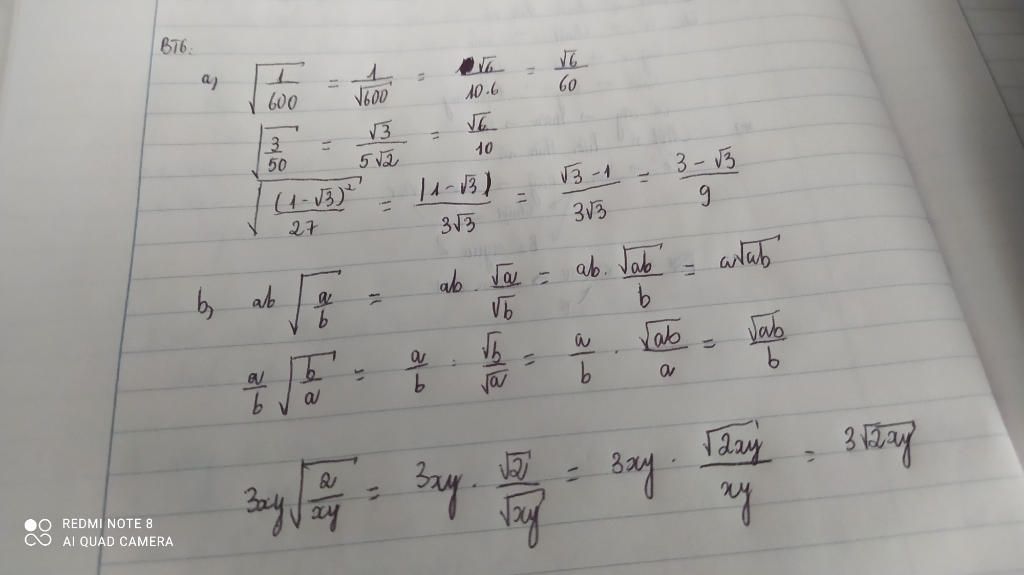 BT6.
a, √(1/600) = 1/√600 = √6/10.6 = √6/60
√(3/50) = √3/5√2 = √6/10
√((1-√3)²/27) = |1-√3|/3√3 = √3-1/3√3 = 3-√3/9
b, ab √(a/b) = ab · √a/√b = ab · √ab/b = a√ab
a/b √(b/a) = a/b · √b/√a = a/b · √ab/a = √ab/b
3xy √(2/xy) = 3xy · √2/√xy = 3xy · √2xy/xy = 3√2xy
REDMI NOTE 8
AI QUAD CAMERA